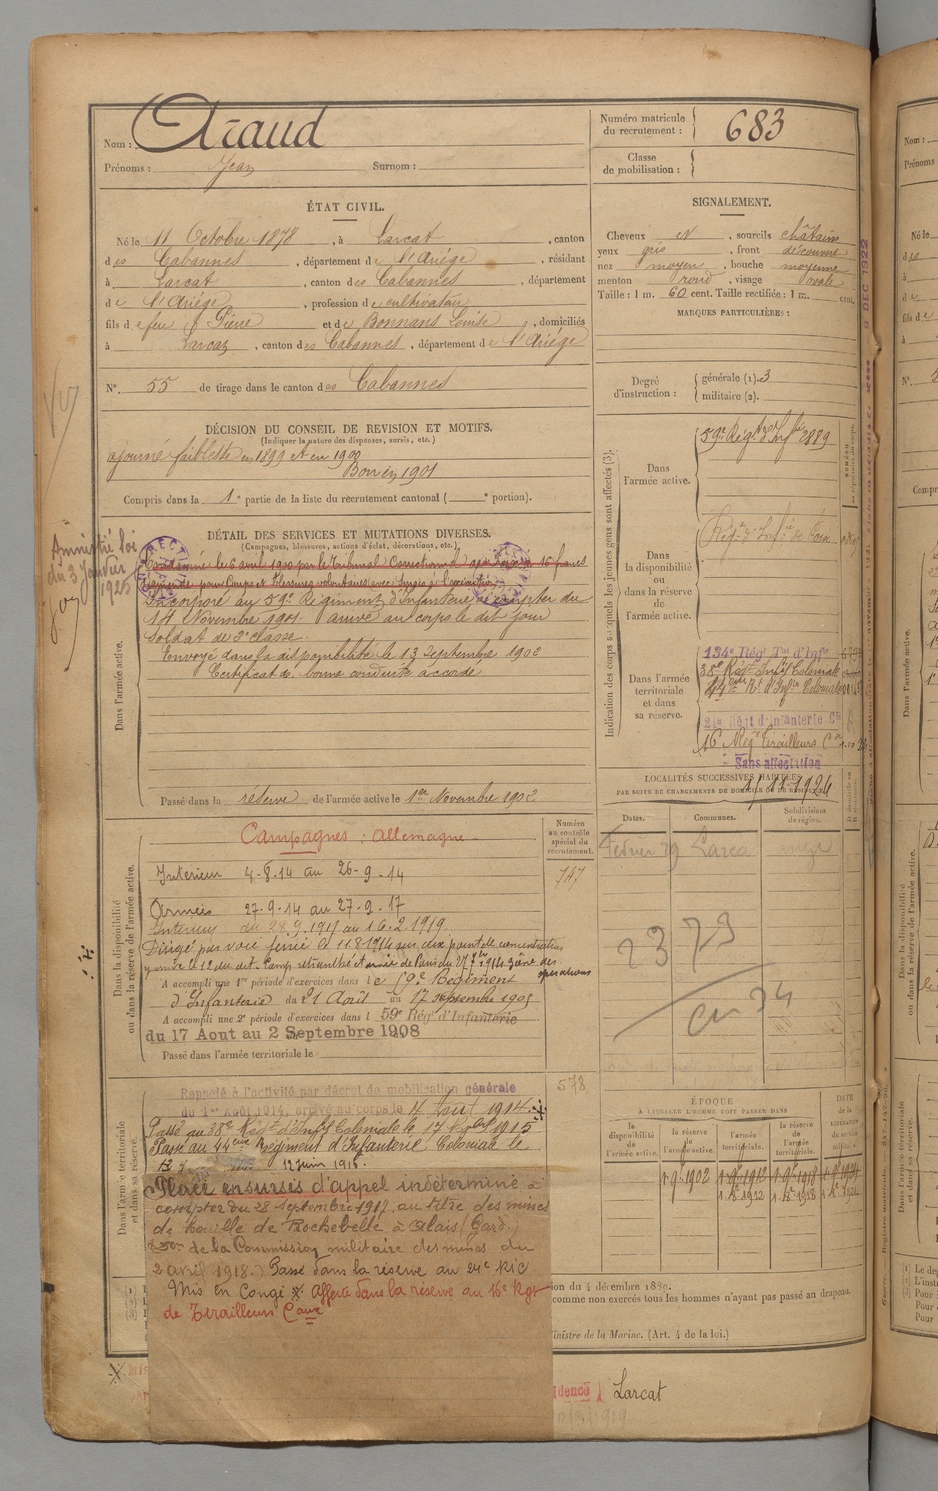 Nom : Araud
Prénoms : Jean Surnom :
Numéro matricule du recrutement : 683
Classe de mobilisation :
ÉTAT CIVIL.
Né le 11 Octobre 1878, à Larcat, canton
des Cabannes, département de l'Ariège, résidant
à Larcat, canton des Cabannes, département
de l'Ariège, profession de cultivateur
fils de feu Pierre et de Bonnans Louise, domiciliés
à Larcat, canton des Cabannes, département de l'Ariège
N° 55 de tirage dans le canton des Cabannes
DÉCISION DU CONSEIL DE REVISION ET MOTIFS.
(Indiquer la nature des dispenses, sursis, etc.)
ajourné faiblesse en 1899 et en 1900
Bon en 1901
Compris dans la 1e partie de la liste du recrutement cantonal ( e portion).
DÉTAIL DES SERVICES ET MUTATIONS DIVERSES.
(Campagnes, blessures, actions d'éclat, décorations, etc.)
Amnistié loi
du 3 Janvier
1925
Condamné le 6 avril 1900 par le Tribunal Correctionnel 15 francs
d'amende pour Coups et blessures volontaires avec
Incorporé au 59e Régiment d'Infanterie à compter du
14 Novembre 1901 arrivé au corps le dit jour
Soldat de 2e classe.
Envoyé dans la disponibilité le 13 Septembre 1902
Certificat de bonne conduite accordé
Dans l'armée active.
Passé dans la réserve de l'armée active le 1er Novembre 1902
Campagnes : Allemagne
Numéro au contrôle spécial du recrutement.
747
Intérieur 4-8-14 au 26-9-14
Armées 27-9-14 au 27-9-17
Intérieur du 28.9.1917 au 16.2.1919
Dirigé par voie ferrée le 11.8.1914 sur
A accompli une 1re période d'exercices dans le 59e Régiment
d'Infanterie du 21 Août au 17 septembre 1905
A accompli une 2e période d'exercices dans l 59e Rég' d'Infanterie
du 17 Aout au 2 Septembre 1908
Passé dans l'armée territoriale le
Dans la disponibilité ou dans la réserve de l'armée active.
578
Rappelé à l'activité par décret de mobilisation générale
du 1er Août 1914, arrivé au corps le 4 Août 1914.
Passé au 38e Régt d'Inf' Coloniale le 17 1915
Passé au 44eme Régiment d'Infanterie Coloniale le
12 juin 1916.
Placé en sursis d'appel indéterminé à
compter du 28 septembre 1917 au titre des mines
de houille de Rochebelle à Alais (Gard)
de la Commission militaire des mines du
2 avril 1918. Passé dans la réserve au 24e RIC
Mis en Congé Affecté dans la réserve au 16e Rgt
de Tirailleurs Caux
Dans l'armée territoriale et dans sa réserve.
SIGNALEMENT.
Cheveux et, sourcils châtains
yeux gris, front découvert
nez moyen, bouche moyenne
menton rond, visage ovale
Taille : 1 m. 60 cent. Taille rectifiée : 1 m. cent.
MARQUES PARTICULIÈRES :
Degré d'instruction : générale (1). 3
militaire (2).
Indication des corps auxquels les jeunes gens sont affectés (3).
Dans l'armée active.
59e Rég't d'Inf'ie 2889
Dans la disponibilité ou dans la réserve de l'armée active.
Rég't d'Inf'ie de Foix
Dans l'armée territoriale et dans sa réserve.
134e Régt Tal d'Infie
38e Régt Infie Coloniale
44eme Rt d'Infie Coloniale
24e Régt d'Infanterie Cle
16 Régt Tirailleurs Caux
Sans affectation
1/11/1924
9 DEC 1922
LOCALITÉS SUCCESSIVES HABITÉES
PAR SUITE DE CHANGEMENTS DE DOMICILE OU DE RÉSIDENCE.
Dates. Communes. Subdivisions de région.
Février 29 Larca
23 79
cn 34
ÉPOQUE
À LAQUELLE L'HOMME DOIT PASSER DANS
la disponibilité de l'armée active. la réserve de l'armée active. l'armée territoriale. la réserve de l'armée territoriale.
DATE de la LIBÉRATION du service militaire.
ion du 4 décembre 1889.
comme non exercés tous les hommes n'ayant pas passé au drapeau.
Ministre de la Marine. (Art. 4 de la loi.)
idence Larcat
1919